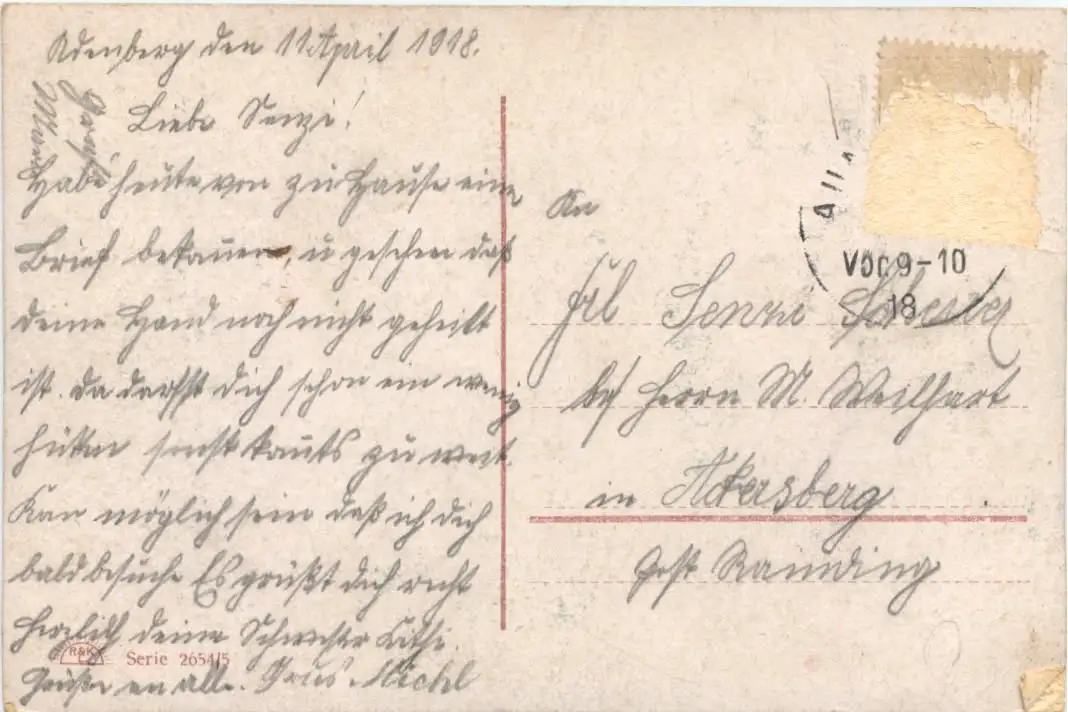 Adenberg den 11 April 1918.
Liebe Senzi!
Habe heute von zu Hause eine
Brief bekauen, u gesehen daß
deine Hand noch nicht geheilt
ist. Da darfst dich schon ein wenig
hüten sonst kauts zu weit.
Kan möglich sein daß ich dich
bald besuche Es grüßt dich recht
herzlich deine Schwester Kathi.
Grüße an alle. Gruß Michl
R&K
Serie 2654/5
An
Frl Senzi
bei Herrn M. Weilhart
in Ackersberg
Post Ramding
A 11
Vor 9-10
18